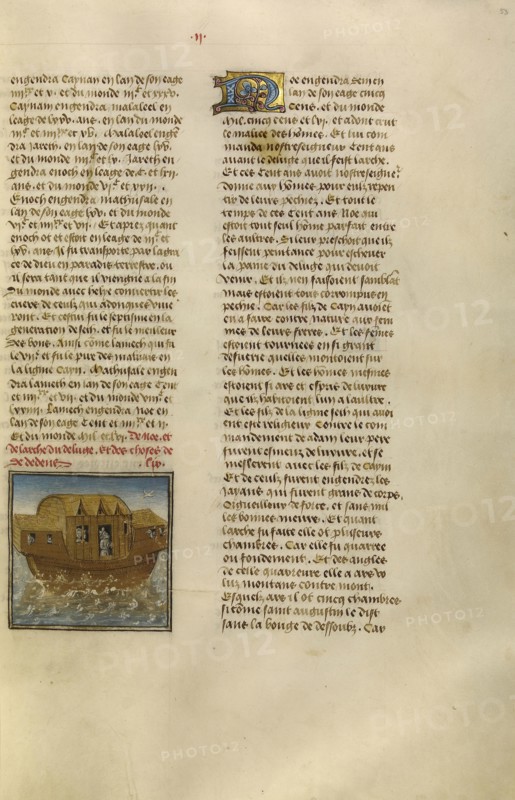 .ii.
engendra Caynan en lan de son eage
Caynam engendra malaleel en
leage de lxv. ans. en lan du monde
dra Jareth. en lan de son eage lxv.
et du monde Jareth en
gendra enoch en leage de et lxii
ans. et du monde
Enoch engendra mathusale en
lan de son eage lxv. et du monde
Et apres quant
enoch ot et estoit en leage de
ans. il fu transporte par la grace
ce de dieu en paradis terrestre. ou
il sera tant que il viengne a la fin
Du monde avec helye convertir les
cuers de ceulx qui adonques vivr
ront. Et cestui fu le septisme en la
generation de seth. et fu le meilleur
Des bons. Aussi come lamech qui fu
le et fu le pire des malvais en
la ligne Cayn. Mathusale engen
dra lamech en lan de son eage Cent
et et du monde
Lamech engendra noe en
lan de son eage Cent et
Et du monde De noe. et
de larche du deluge. et des choses de
De dedens
Noe engendra sem en
lan de son eage cincq
Cens. et du monde
cincq cens et lvi. et adont crut
le malice des homes. Et lui com
manda nostre seigneur Cent ans
avant le deluge quil feist larche.
Et ces Cent ans avoit nostre seigner
donne aux homes pour eulx repen
tir de leurs pechiez. Et tout le
temps de ces Cent ans Noe qui
estoit tout seul home parfait entre
les aultres. Si leur preschoit quilz
feissent penitance pour eschever
la paine du deluge qui devoit
venir. Et ilz nen faisoient samblant
mais estoient tous corrompus en
pechie. Car les filz de Cayn avoient
en a faire contre nature aux fem
mes de leurs freres. Et les femes
estoient tournees en si grant
desverie quelles montoient sur
les homes. Et les homes mesmes
estoient si ars et espris de luxure
que ilz habitoient lun a laultre.
Et les filz de la ligne seth qui avoi
ent este religieux Contre le com
mandement de adam leur pere
furent esmeuz de luxure. et se
meslerent avec les filz de Cayin
Et de ceulx furent engendrez les
Jayans qui furent grans de corps.
Orgueilleux de force. et sans nul
les bonnes meurs. Et quant
larche fu faite elle ot plusieurs
chambres. Car elle fu quarree
ou fondement. Et des angles
de celle quarreure elle a ars vo
lus montans contre mont.
Esquelz ars il ot cincq chambres
si come saint augustin le dist
sans la bouge de dessoubz. Car
PHOTO12
PHOTO12
PHOTO12